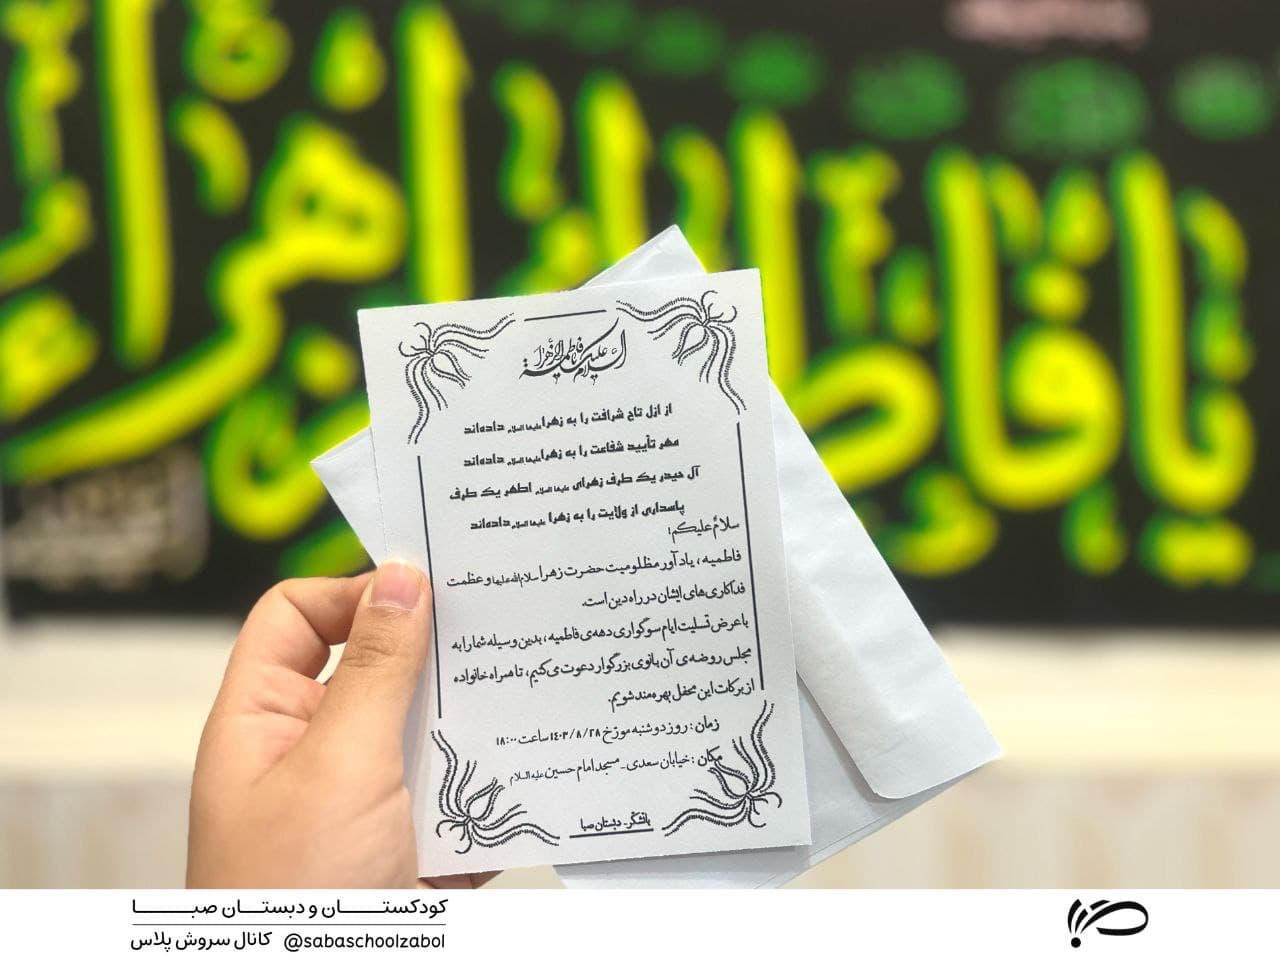 یا فاطمة الزهرا
السلام علیک یا فاطمة الزهرا
از ازل تاج شرافت را به زهرا علیها السلام داده‌اند
مهر تأیید شفاعت را به زهرا علیها السلام داده‌اند
آل حیدر یک طرف زهرای علیها السلام اطهر یک طرف
پاسداری از ولایت را به زهرا علیها السلام داده‌اند
سلامٌ علیکم؛
فاطمیه، یادآور مظلومیت حضرت زهرا سلام‌الله‌علیها و عظمت
فداکاری‌های ایشان در راه دین است.
با عرض تسلیت ایام سوگواری دهه‌ی فاطمیه، بدین وسیله شما را به
مجلس روضه‌ی آن بانوی بزرگوار دعوت می‌کنیم، تا همراه خانواده
از برکات این محفل بهره‌مند شویم.
زمان: روز دوشنبه مورّخ ۱۴۰۳/۸/۲۸ ساعت ۱۸:۰۰
مکان: خیابان سعدی - مسجد امام حسین علیه السلام
باتشکّر - دبستان صبا
کودکستان و دبستان صبا
کانال سروش پلاس @sabaschoolzabol
صبا